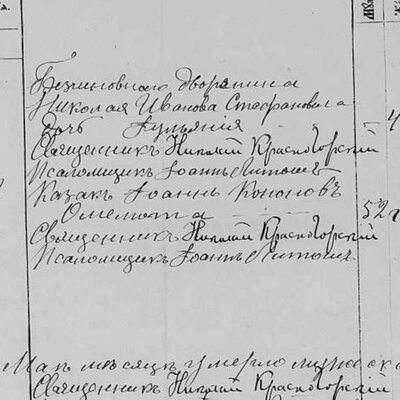 Безчиновнаго дворянина
Николая Иванова Стефановича
дочь Іуліанія 4
Священникъ Николай Красногорскій
Псаломщикъ Іоаннъ Литош
Казакъ Іоаннъ Кононовъ
Омелюта 52
Священникъ Николай Красногорскій
Псаломщикъ Іоаннъ Литош
мѣсяцѣ умерло
Священникъ Николай Красногорскій